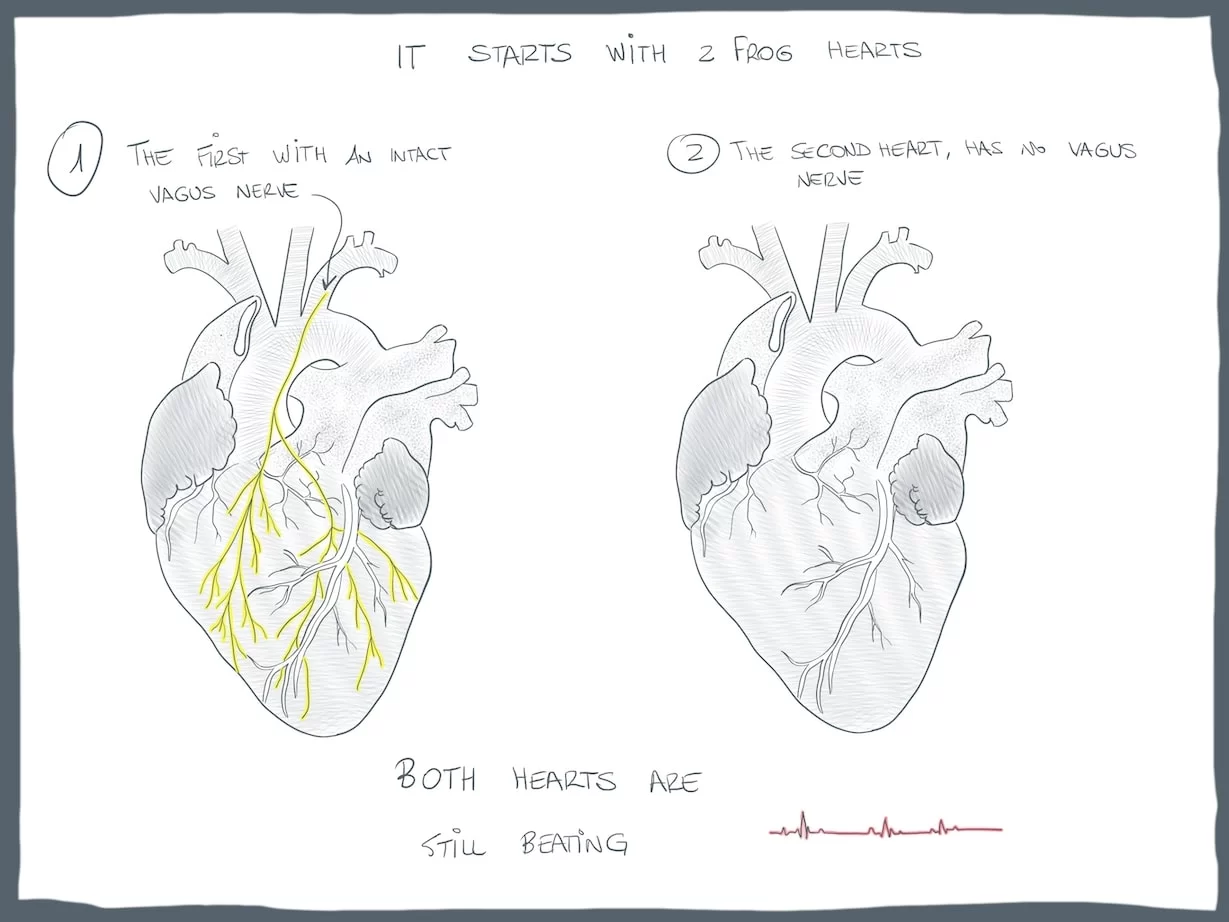 IT STARTS WITH 2 FROG HEARTS
1 THE FIRST WITH AN INTACT
VAGUS NERVE
2 THE SECOND HEART, HAS NO VAGUS
NERVE
BOTH HEARTS ARE
STILL BEATING